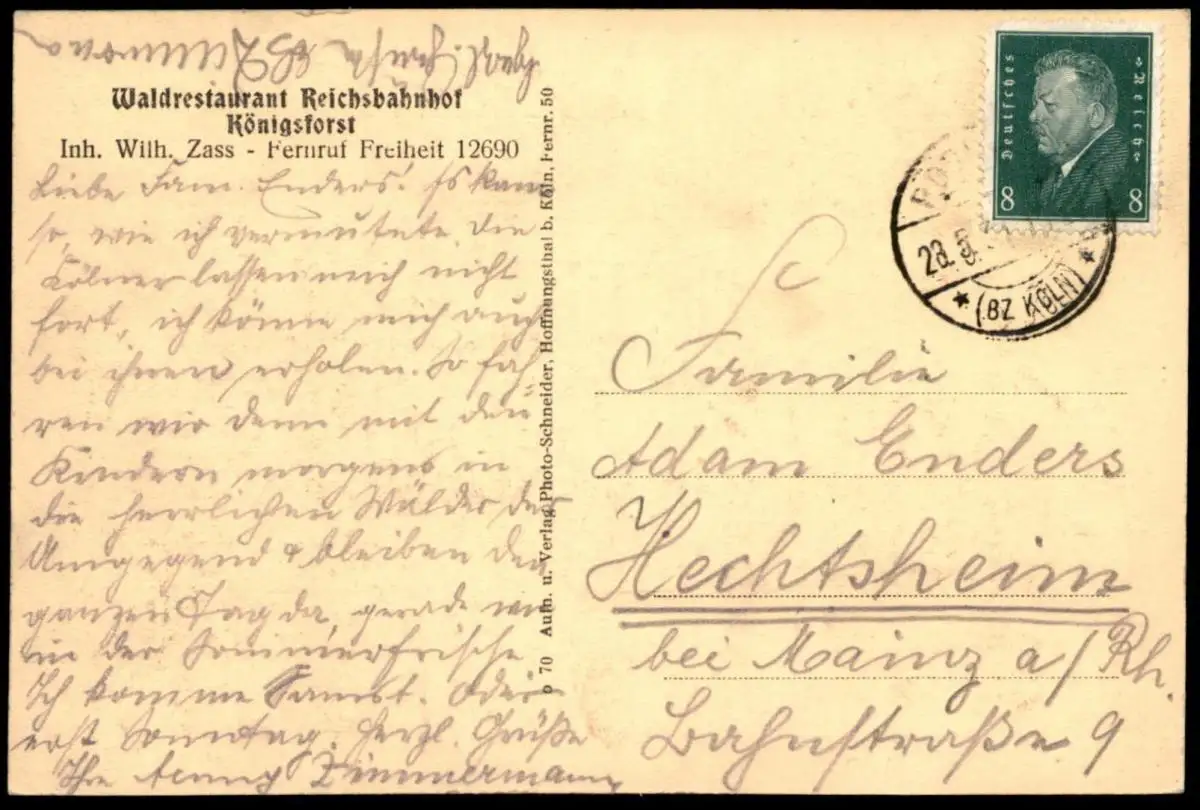 Waldrestaurant Reichsbahnhof
Königsforst
Inh. Wilh. Zass - Fernruf Freiheit 12690
Liebe Fam. Enders! Es kam
so, wie ich vermutete. Die
Kölner lassen mich nicht
fort, ich könne mich auch
bei ihnen erholen. So fah-
ren wir denn mit den
Kindern morgens in
die herrlichen Wälder der
Umgegend & bleiben den
ganzen Tag da, gerade wie
in der Sommerfrische
Ich komme Samst. oder
erst Sonntag. Herzl. Grüße
Ihre Zimmermann
o 70 Aufn. u. Verlag Photo-Schneider, Hoffnungsthal b. Köln, Fernr. 50
Deutsches Reich
8 8
28.5.
(BZ KÖLN)
Familie
Adam Enders
Hechtsheim
bei Mainz a/Rh.
Bahnstraße 9